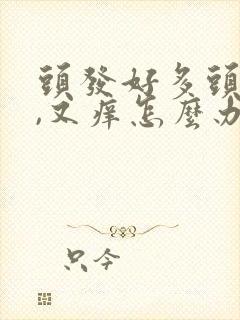 頭發好多頭
,又癢怎麽办
只今